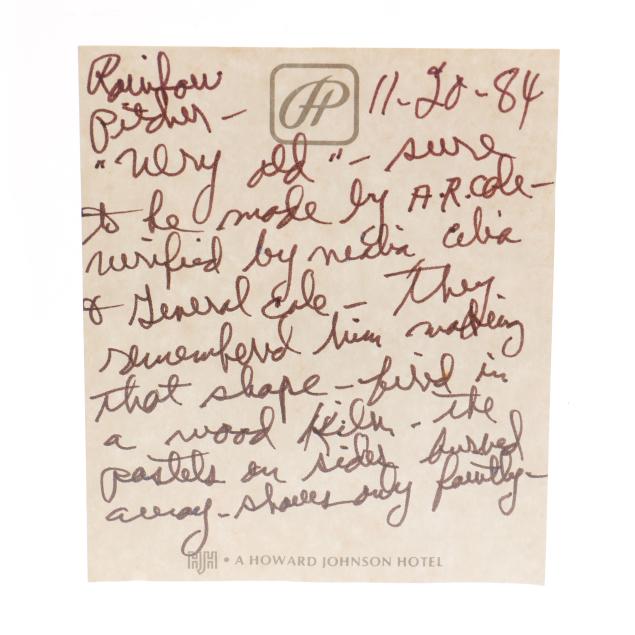 Rainbow
Pitcher - 11-20-84
"Very old" - sure
to be made by A.R. Cole -
verified by neolia, celia
& General Cole - They
remembered him making
that shape - fired in
a wood Kiln - the
pastels on sides burned
away - shows only faintly -
HJH • A HOWARD JOHNSON HOTEL